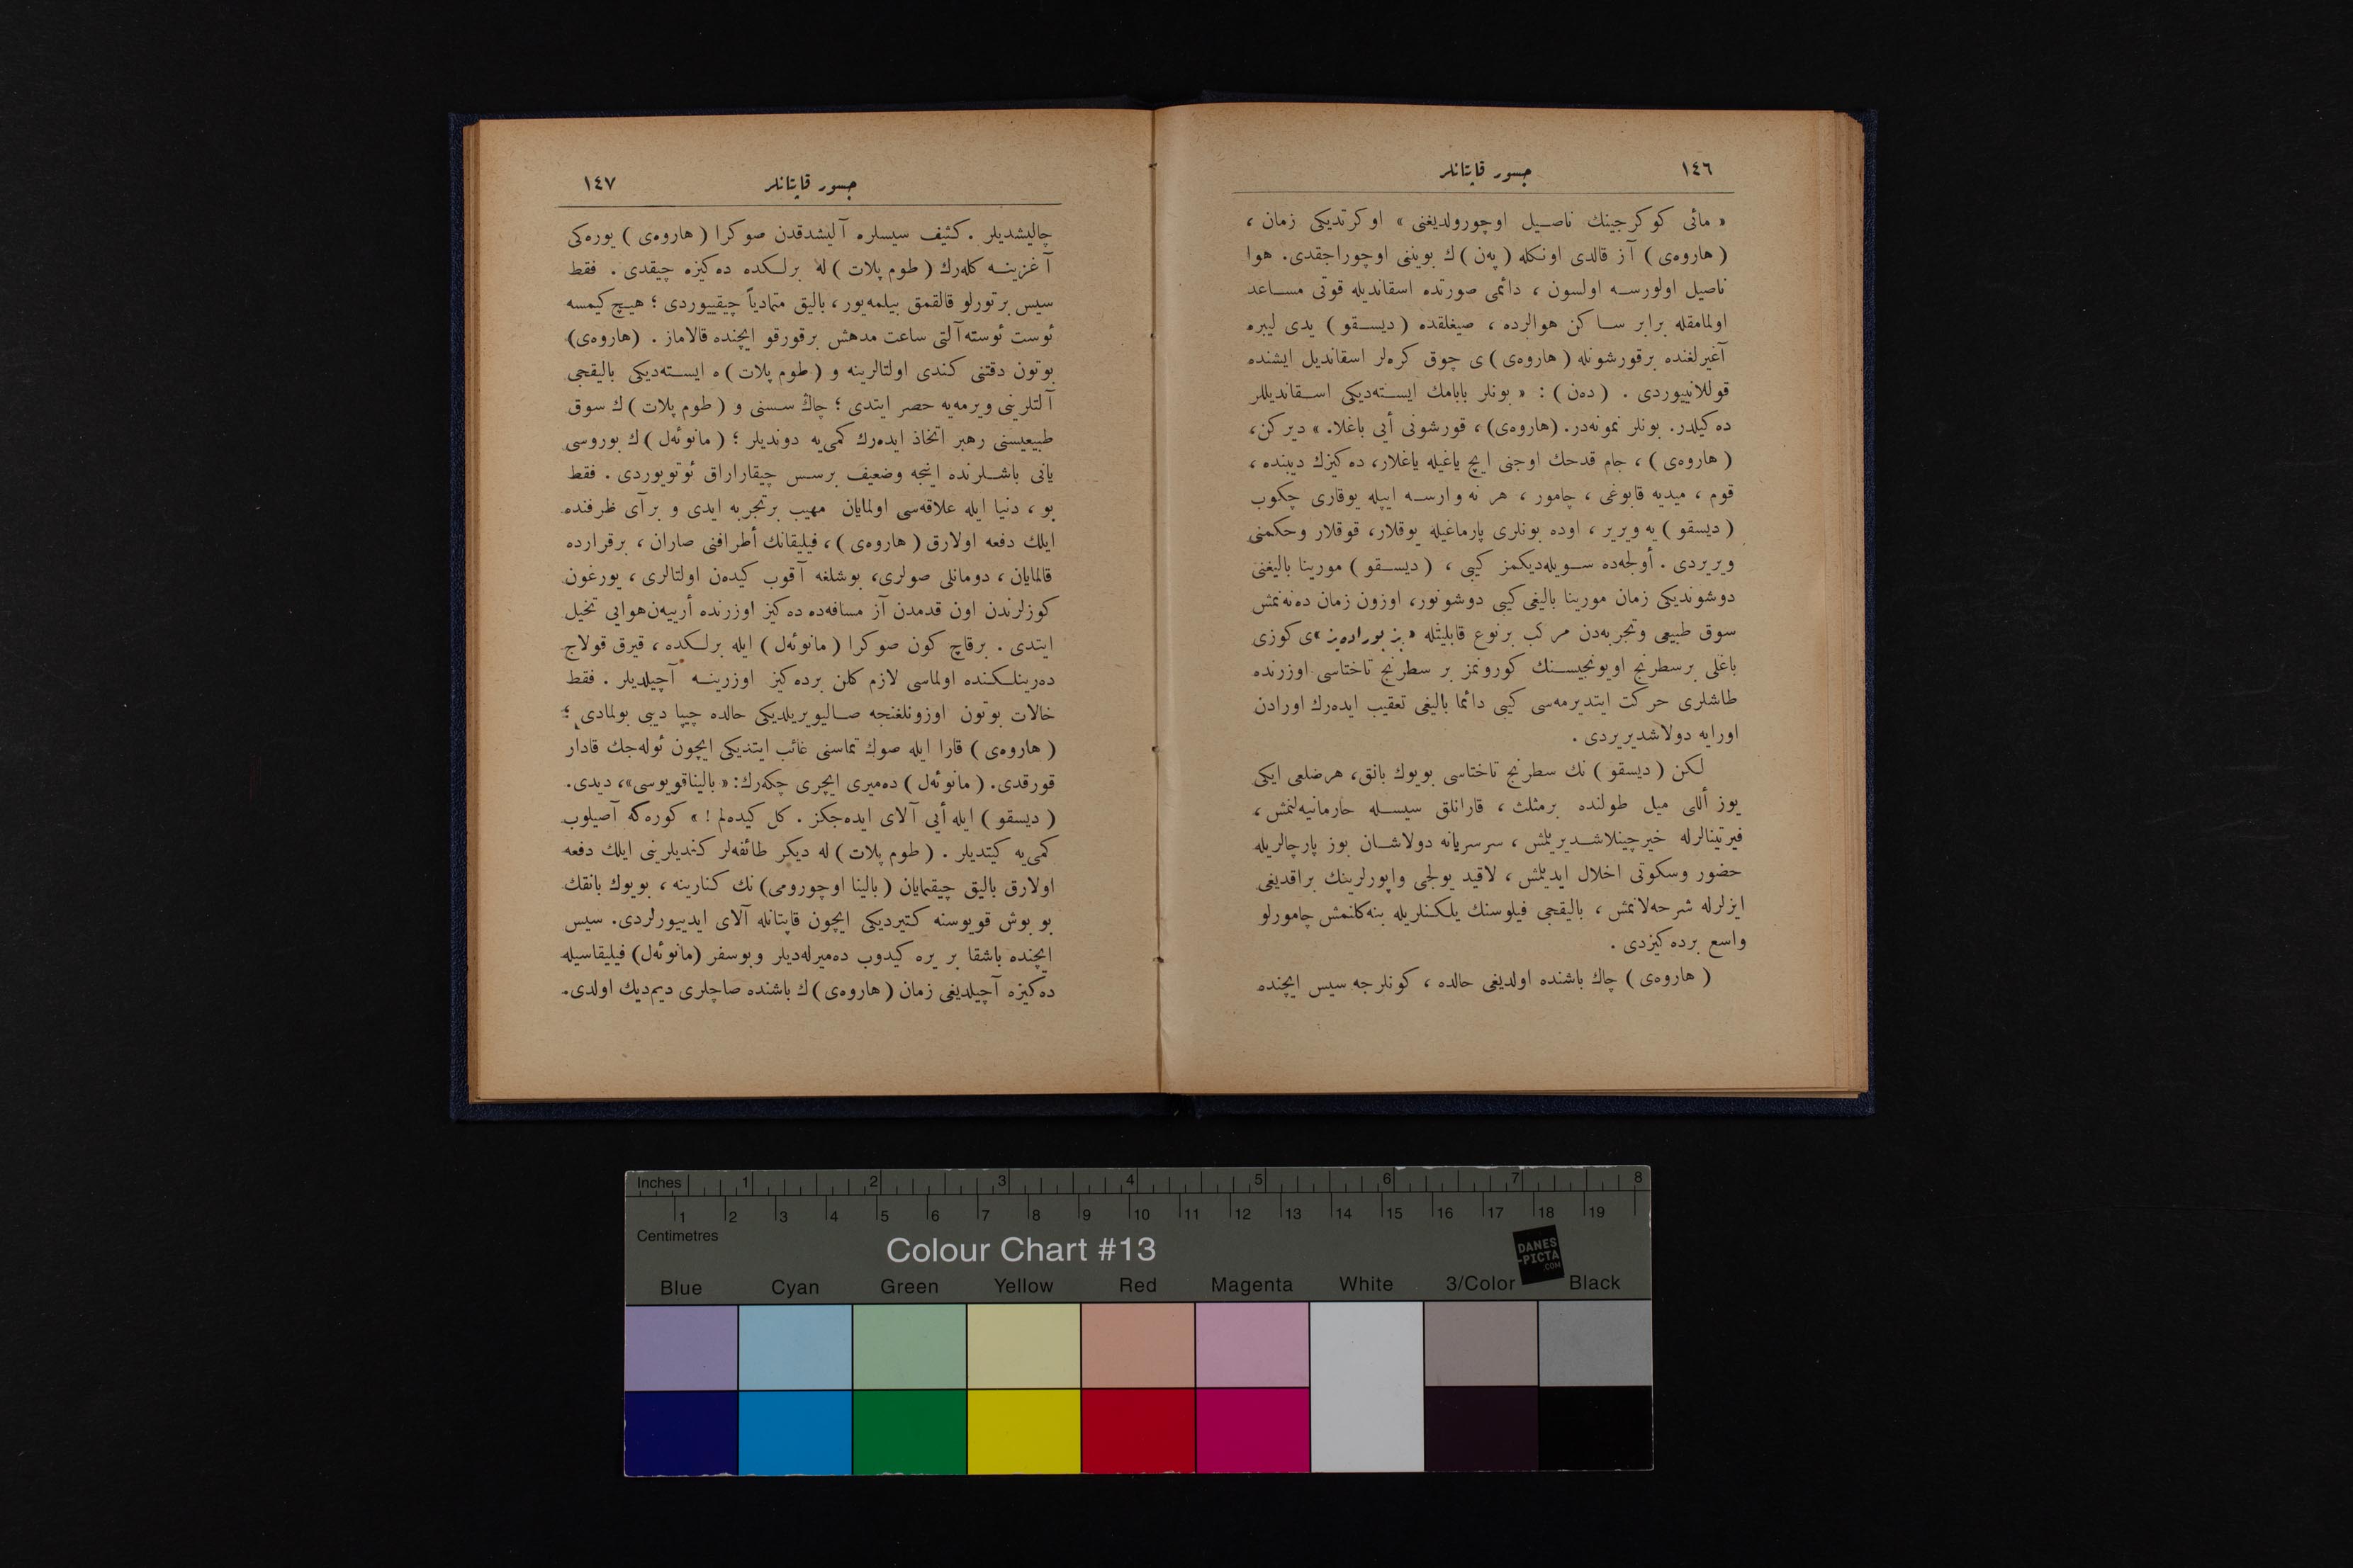 ١٤٦
جسور قاپتانلر
« مائی كوكرجينك ناصيل اوچورولديغنی » اوكرتديكی زمان ،
( هاروه‌ی ) آز قالدی اونكله ( په‌ن )ك بويننی اوچوراجقدی. هوا
ناصيل اولورسه اولسون ، دائمی صورتده اسقانديله قوتی مساعد
اولمامقله برابر ساكن هوالرده ، صيغلقده ( ديسقو ) يدی ليبره
آغيرلغنده برقورشونله ( هاروه‌ی )ی چوق كره‌لر اسقانديل ايشنده
قوللانييوردی . ( ده‌ن ) : « بونلر بابامك ايسته‌ديكی اسقانديللر
ده‌كيلدر. بونلر نمونه‌در. (هاروه‌ی) ، قورشونی أيی باغلا. » ديركن،
( هاروه‌ی ) ، جام قدحك اوجنی ايچ ياغيله ياغلار، ده‌كيزك ديبنده ،
قوم ، ميديه قابوغی ، چامور ، هر نه وارسه ايپله يوقاری چكوب
( ديسقو ) يه ويرير ، اوده بونلری پارماغيله يوقلار، قوقلار وحكمنی
ويريردی . أولجه‌ده سويله‌ديكمز كيبی ، ( ديسقو ) مورينا باليغنی
دوشونديكی زمان مورينا باليغی كيبی دوشونور، اوزون زمان ده‌نه‌نمش
سوق طبيعی وتجربه‌دن مركب برنوع قابليتله « بز بوراده‌يز »ی كوزی
باغلی برسطرنج اويونجيسنك كورونمز بر سطرنج تاختاسی اوزرنده
طاشلری حركت ايتديرمه‌سی كيبی دائما باليغی تعقيب ايده‌رك اورادن
اورايه دولاشديريردی .
لكن ( ديسقو ) نك سطرنج تاختاسی بويوك بانق، هرضلعی ايكی
يوز أللی ميل طولنده برمثلث ، قارانلق سيسله حارمانيه‌لنمش ،
فيرتينالرله خيرچينلاشديريلمش ، سرسريانه دولاشان بوز پارچالريله
حضور وسكوتی اخلال ايديلمش ، لاقيد يولجی واپورلرينك براقديغی
ايزلرله شرحه‌لانمش ، باليقجی فيلوسنك يلكنلريله بنه‌كلنمش چامورلو
واسع برده‌كيزدی .
( هاروه‌ی ) چاك باشنده اولديغی حالده ، كونلرجه سيس ايچنده
جسور قاپتانلر
١٤٧
چاليشديلر . كثيف سيسلره آليشدقدن صوكرا ( هاروه‌ی ) يوره‌كی
آغزينه كله‌رك ( طوم پلات ) له برلكده ده‌كيزه چيقدی . فقط
سيس برتورلو قالقمق بيلمه‌يور ، باليق متماديا ً چيقييوردی ؛ هيچ كيمسه
ئوست ئوسته آلتی ساعت مدهش برقورقو ايچنده قالاماز . (هاروه‌ی)
بوتون دقتنی كندی اولتالرينه و ( طوم پلات ) ه ايسته‌ديكی باليقجی
آلتلرينی ويرمه‌يه حصر ايتدی ؛ چاك سسنی و ( طوم پلات )ك سوق
طبيعيسنی رهبر اتخاذ ايده‌رك كمی‌يه دونديلر ؛ ( مانوئه‌ل )ك بوروسی
يانی باشلرنده اينجه وضعيف برسس چيقاراراق ئوتويوردی . فقط
بو ، دنيا ايله علاقه‌سی اولمايان مهيب برتجربه ايدی و برآی ظرفنده
ايلك دفعه اولارق ( هاروه‌ی ) ، فيليقانك أطرافنی صاران ، برقرارده
قالمايان ، دومانلی صولری، بوشلغه آقوب كيده‌ن اولتالری ، يورغون
كوزلرندن اون قدمدن آز مسافه‌ده ده‌كيز اوزرنده أرييه‌ن هوايی تخيل
ايتدی . برقاچ كون صوكرا ( مانوئه‌ل ) ايله برلكده ، قيرق قولاج
ده‌رينلكنده اولماسی لازم كلن برده‌كيز اوزرينه آچيلديلر . فقط
خالات بوتون اوزونلغنجه صاليويريلديكی حالده چيپا ديبی بولمادی ؛
( هاروه‌ی ) قارا ايله صوك تماسنی غائب ايتديكی ايچون ئوله‌جك قادار
قورقدی. ( مانوئه‌ل ) ده‌ميری ايچری چكه‌رك: « بالينا قويوسی»، ديدی.
( ديسقو ) ايله أيی آلای ايده‌جكز . كل كيده‌لم ! » كوره‌كه آصيلوب
كمی‌يه كيتديلر . ( طوم پلات ) له ديكر طائفه‌لر كنديلرينی ايلك دفعه
اولارق باليق چيقمايان ( بالينا اوچورومی) نك كنارينه ، بويوك بانقك
بو بوش قويوسنه كتيرديكی ايچون قاپتانله آلای ايدييورلردی. سيس
ايچنده باشقا بر يره كيدوب ده‌ميرله‌ديلر وبوسفر (مانوئه‌ل) فيليقاسيله
ده‌كيزه آچيلديغی زمان ( هاروه‌ی )ك باشنده صاچلری ديم‌ديك اولدی.
Inches 1 2 3 4 5 6 7 8
1 2 3 4 5 6 7 8 9 10 11 12 13 14 15 16 17 18 19
Centimetres
Colour Chart #13
DANES
-PICTA
.COM
Blue Cyan Green Yellow Red Magenta White 3/Color Black